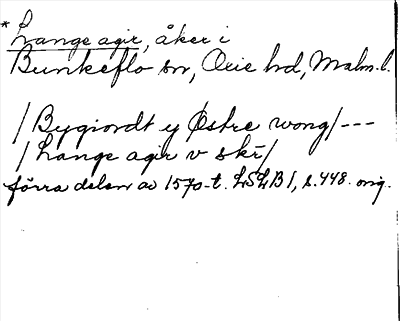 * Lange agir, åker i
Bunkeflo sn, Oxie hd, Malm. l.
/ Bygiordt y Østre wong / ---
/ Lange agir v skr /
förra delen av 1570-t. LSLB I, s. 448. orig.